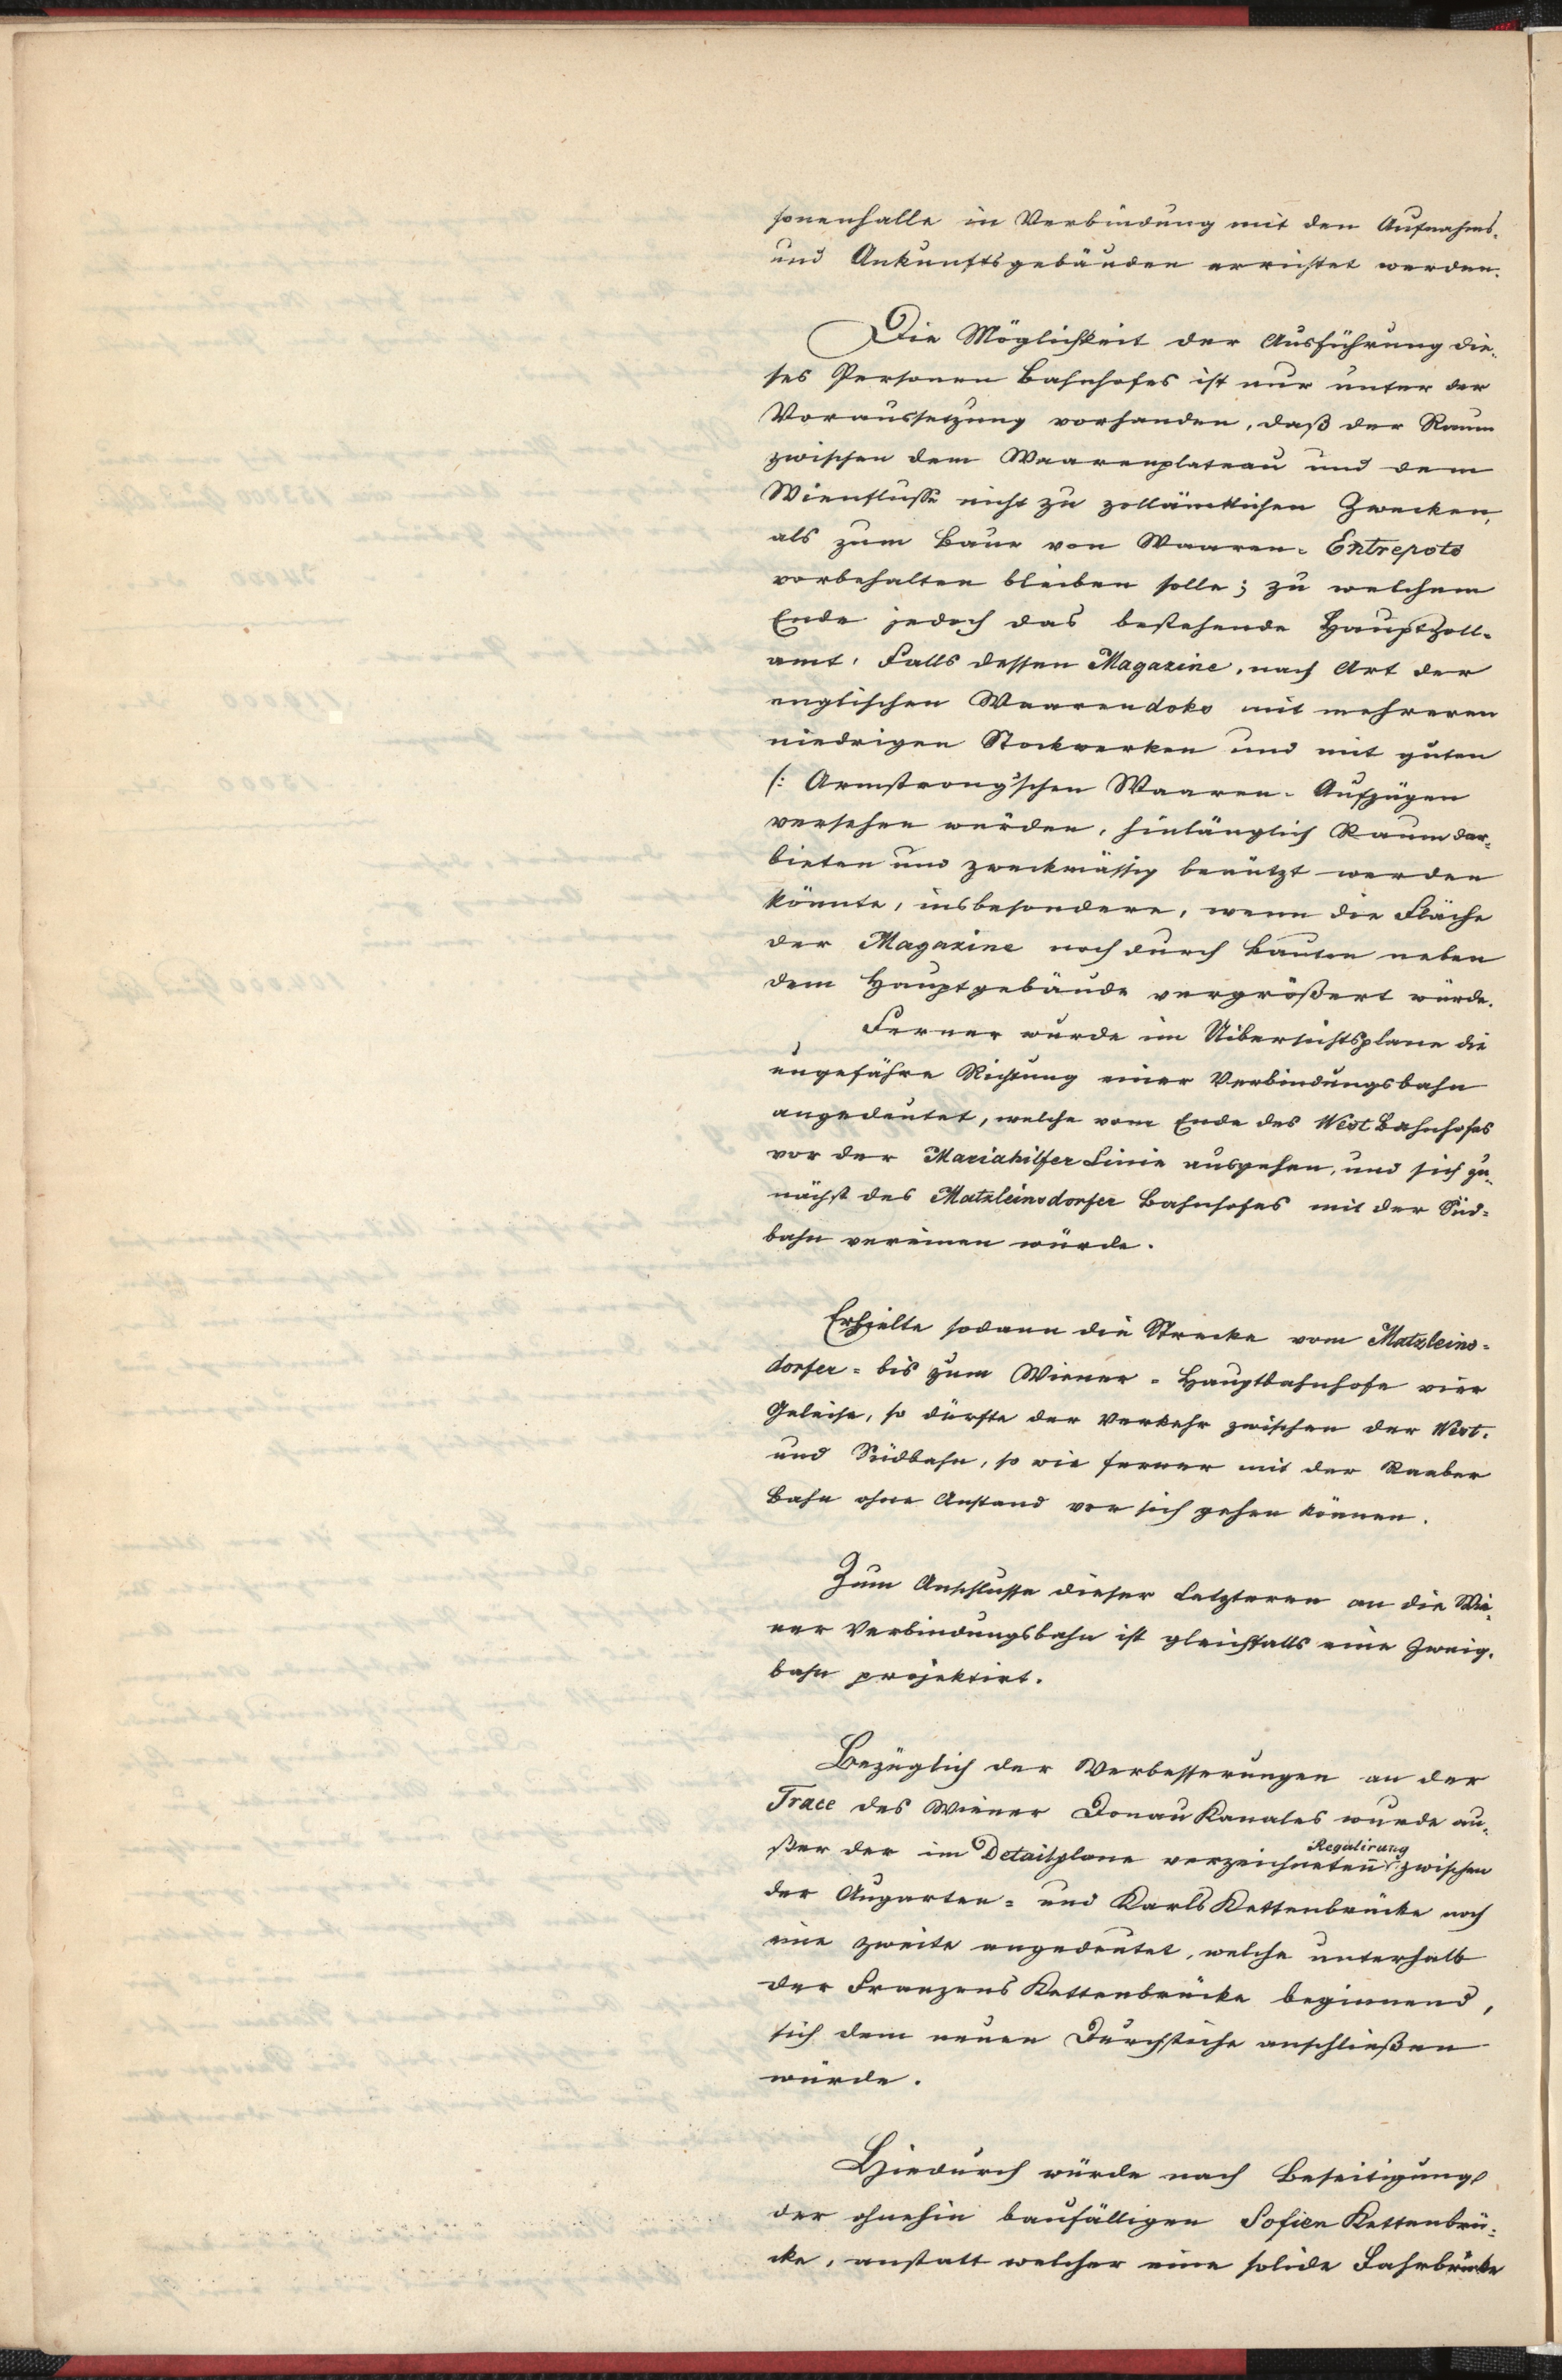 sonenhalle in Verbindung mit den Aufnahms-
und Ankunftsgebäuden errichtet werden.
Die Möglichkeit der Ausführung die-
ses Personen Bahnhofes ist nur unter der
Voraussetzung vorhanden, daß der Raum
zwischen dem Waarenplateau und dem
Wienflusse nicht zu zollämtlichen Zwecken,
als zum Baue von Waaren-Entrepots
vorbehalten bleiben solle; zu welchem
Ende jedoch das bestehende Hauptzoll-
amt, Falls dessen Magazine, nach Art der
englischen Waarendoks mit mehreren
niedrigen Stockwerken und mit guten
(: Armstrong'schen Waaren-Aufzügen
versehen würden, hinlänglich Raum dar-
bieten und zweckmässig benützt werden
könnte, insbesondere, wenn die Fläche
der Magazine noch durch Bauten neben
dem Hauptgebäude vergrößert würde.
Ferner wurde im Uibersichtsplane die
ungefähre Richtung einer Verbindungsbahn
angedeutet, welche vom Ende des West Bahnhofes
vor der Mariahilfer Linie ausgehen, und sich zu-
nächst des Matzleinsdorfer Bahnhofes mit der Süd-
bahn vereinen würde.
Erhielte sodann die Strecke vom Matzleins-
dorfer- bis zum Wiener-Hauptbahnhofe vier
Geleise, so dürfte der Verkehr zwischen der West-
und Südbahn, so wie ferner mit der Raaber
Bahn ohne Anstand vor sich gehen können.
Zum Anschlusse dieser Letzteren an die Wie-
ner Verbindungsbahn ist gleichfalls eine Zweig-
bahn projektirt.
Bezüglich der Verbesserungen an der
Trace des Wiener Donau Kanales wurde au-
Regulirung
ßer der im Detailplane verzeichneten zwischen
der Augarten- und Karls Kettenbrücke noch
eine zweite angedeutet, welche unterhalb
der Franzens Kettenbrücke beginnend,
sich dem neuen Durchstiche anschließen
würde.
Hiedurch würde nach Beseitigung
der ohnehin baufälligen Sofien Kettenbrü-
cke, anstatt welcher eine solide Fahrbrücke